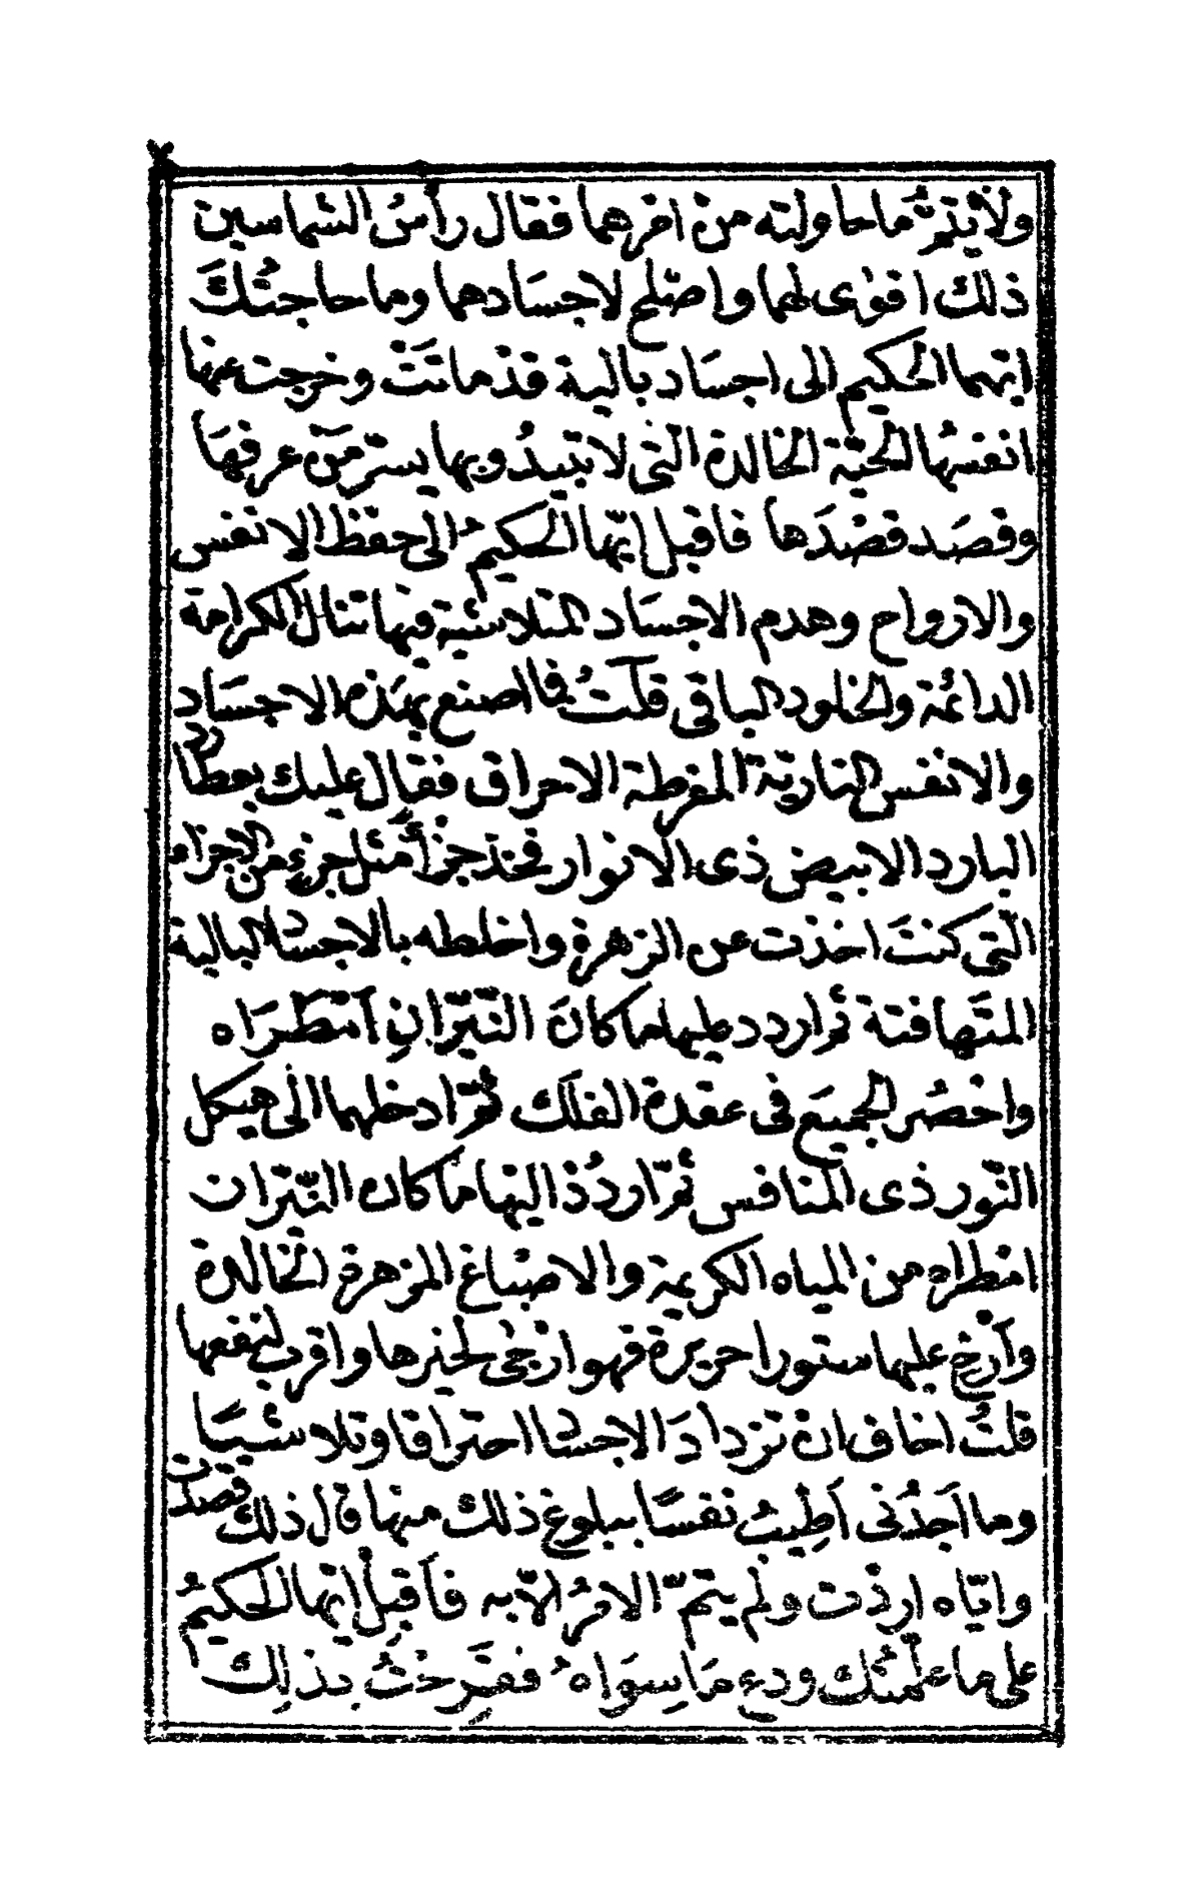 ولا يتمُّ ما حاولته من امرهما فقال رأسُ الشماسين
ذلك اقوى لهما واصلح لاجسادهما وما حاجتُكَ
ايها الحكيم الى اجساد بالية قد ماتَتْ وخرجت عنها
انفسُها الحيّة الخالدة التى لا تبيدُ وبها يسرّ مَن عرفها
وقصَد قصْدَها فاقبل ايّها الحكيمُ الى حفظ الانفس
والارواح وهدم الاجسَاد المتلاشية فيها تنال الكرامة
الدائمة والخلود الباقى قلتُ فما اصنع بهذه الاجسَاد
والانفس الناريّة المفرطة الاحراق فقال عليك بعطارد
البارد الابيض ذى الانوار فخذ جزأ مثل جزءٍ من الاجزاء
التى كنتَ اخذت من الزهرة واخلطه بالاجساد البالية
المتَهافتة ثم اردد عليها ما كانَ النّيّرانِ امْطَرَاه
واحْصُر الجميع فى عقدة الفلَك ثمّ ادخلهما الى هيكل
النّور ذى المنافس ثمّ اردُدْ اليها ما كان النّيّران
امْطراه من المياه الكريمة والاصْباغ المزهرة الخالدة
وأرْخِ عليها ستورا حريرة فهو ارْجى لخيرها واقرب لنفعها
قلتُ اخاف ان تزدادَ الاجساد احتراقا وتلاشيَا
وما اَجدُنى اَطِيبُ نفسًا ببلوغ ذلك منها قال ذلك قصدت
وايّاه اردْت ولم يتمّ الامرُ الّا به فاَقبل ايّها الحكيمُ
على ما علّمتُك ودع مَا سِوَاهُ ففَرِحْتُ بذلِك